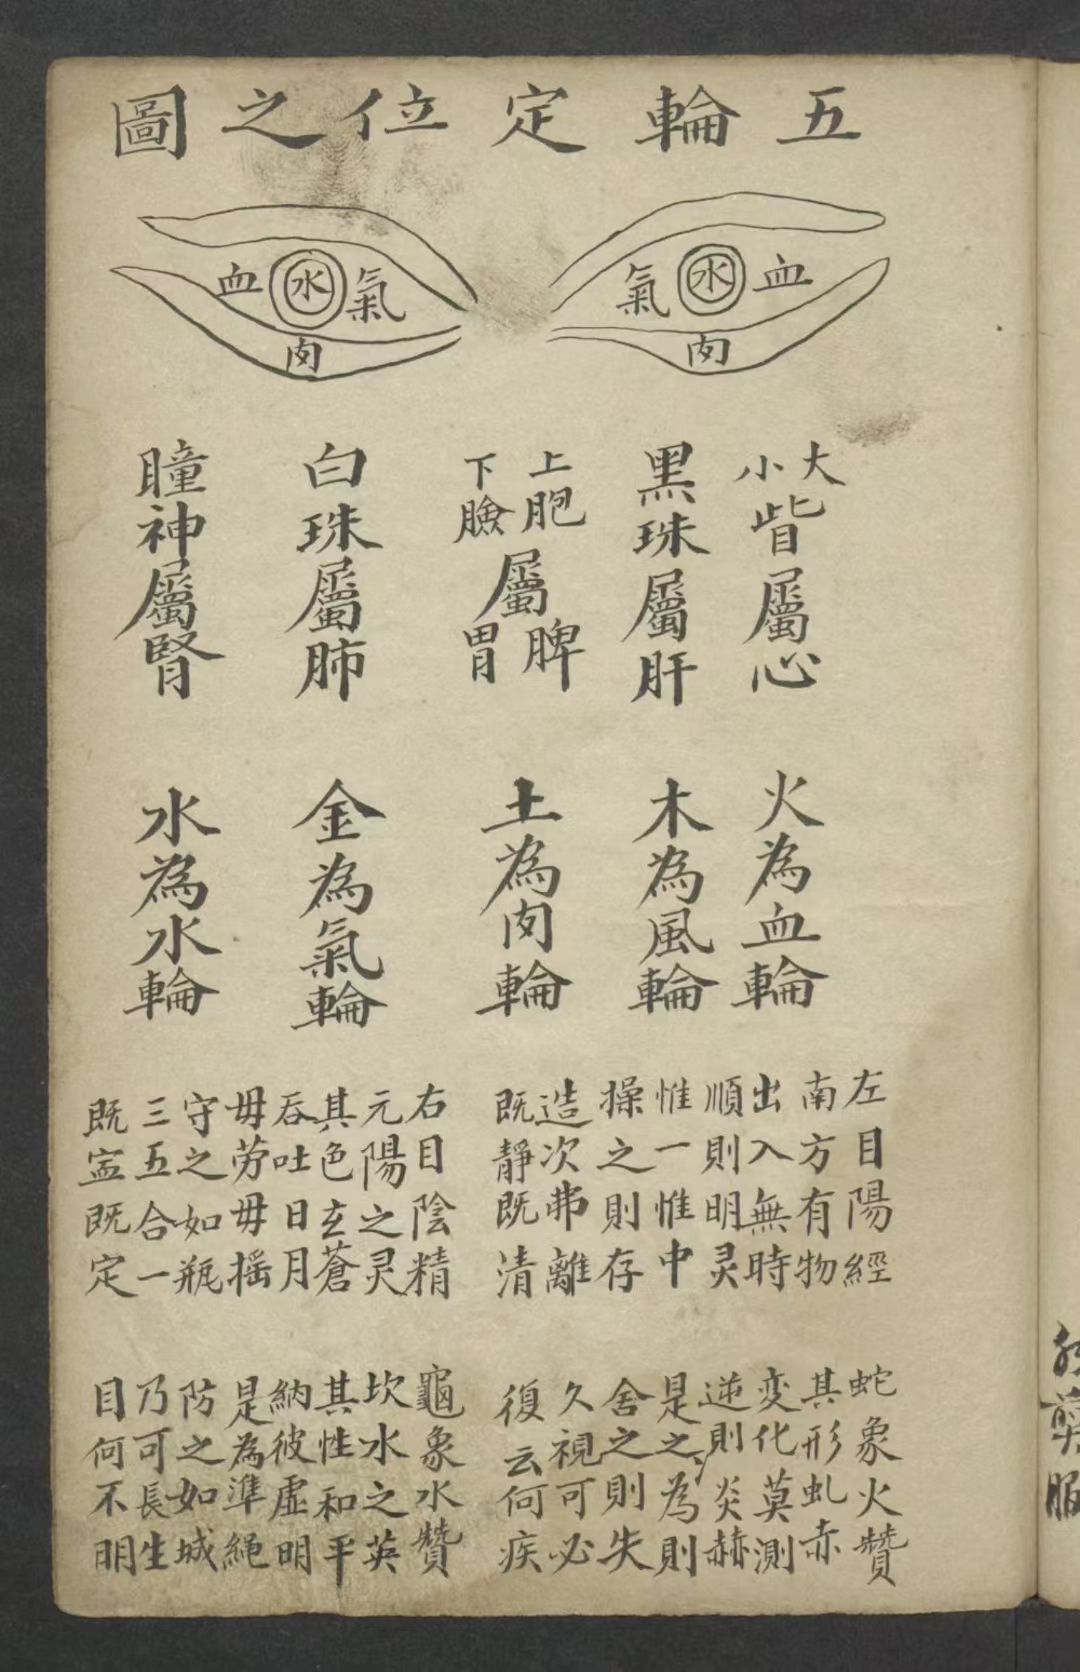 五輪定位之圖
血
水
氣
肉
氣
水
血
肉
大小眥屬心
黑珠屬肝
上胞下臉屬脾胃
白珠屬肺
瞳神屬腎
火為血輪
木為風輪
土為肉輪
金為氣輪
水為水輪
左目陽經 蛇象火贊
南方有物 其形虬赤
出入無時 变化莫測
順則明灵 逆則炎赫
惟一惟中 是之為則
操之則存 舍之則失
造次弗離 久視可必
既靜既清 復云何疾
右目陰精 龜象水贊
元陽之灵 坎水之英
其色玄蒼 其性和平
吞吐日月 納彼虛明
毋劳毋摇 是為準繩
守之如瓶 防之如城
三五合一 乃可長生
既寍既定 目何不明